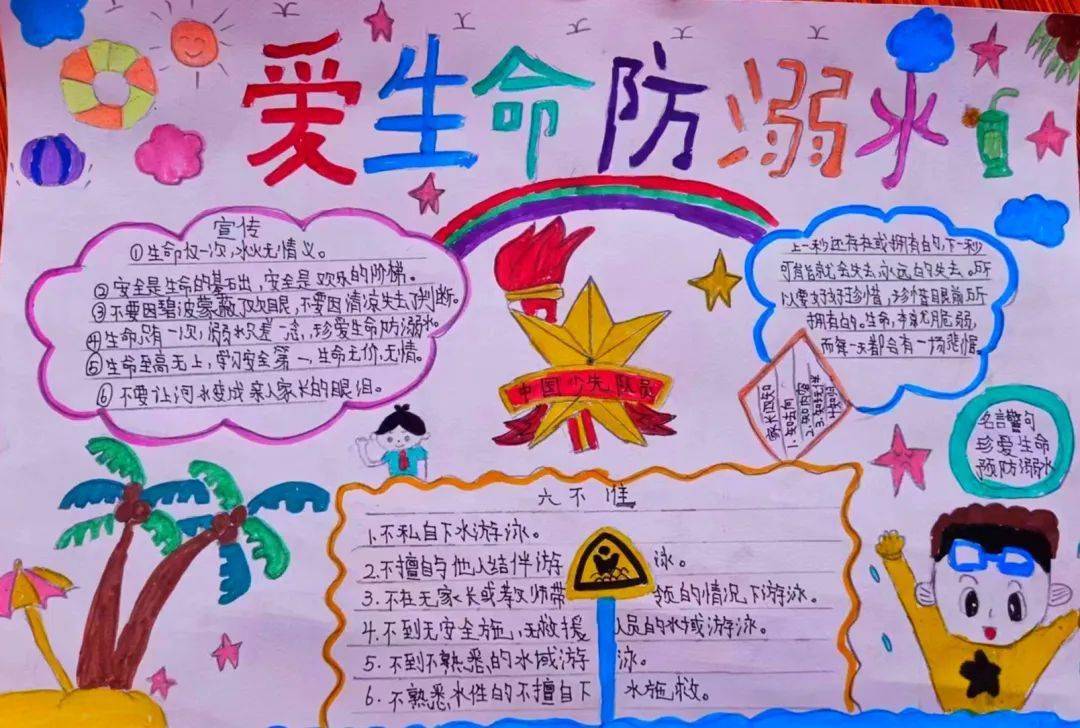 爱生命防溺水
宣传
①生命仅一次,水火无情义。
②安全是生命的基础,安全是欢乐的阶梯。
③不要因碧波蒙蔽了双眼,不要因清凉失去了判断。
④生命只有一次,溺水只差一念,珍爱生命防溺水。
⑤生命至高无上,学习安全第一,生命无价,无情。
⑥不要让河水变成亲人家长的眼泪。
中国少先队员
上一秒还存在或拥有的,下一秒
可有能就会失去,永远的失去。所
以要好好珍惜,珍惜眼前所
拥有的。生命,本就脆弱,
而每一天都会有一场悲惧。
家长四知
1.知去向
2.知内容
名言警句
珍爱生命
预防溺水
六不准
1.不私自下水游泳。
2.不擅自与他人结伴游泳。
3.不在无家长或教师带领的情况下游泳。
4.不到无安全施,无救援人员的水域游泳。
5.不到不熟悉的水域游泳。
6.不熟悉水性的不擅自下水施救。